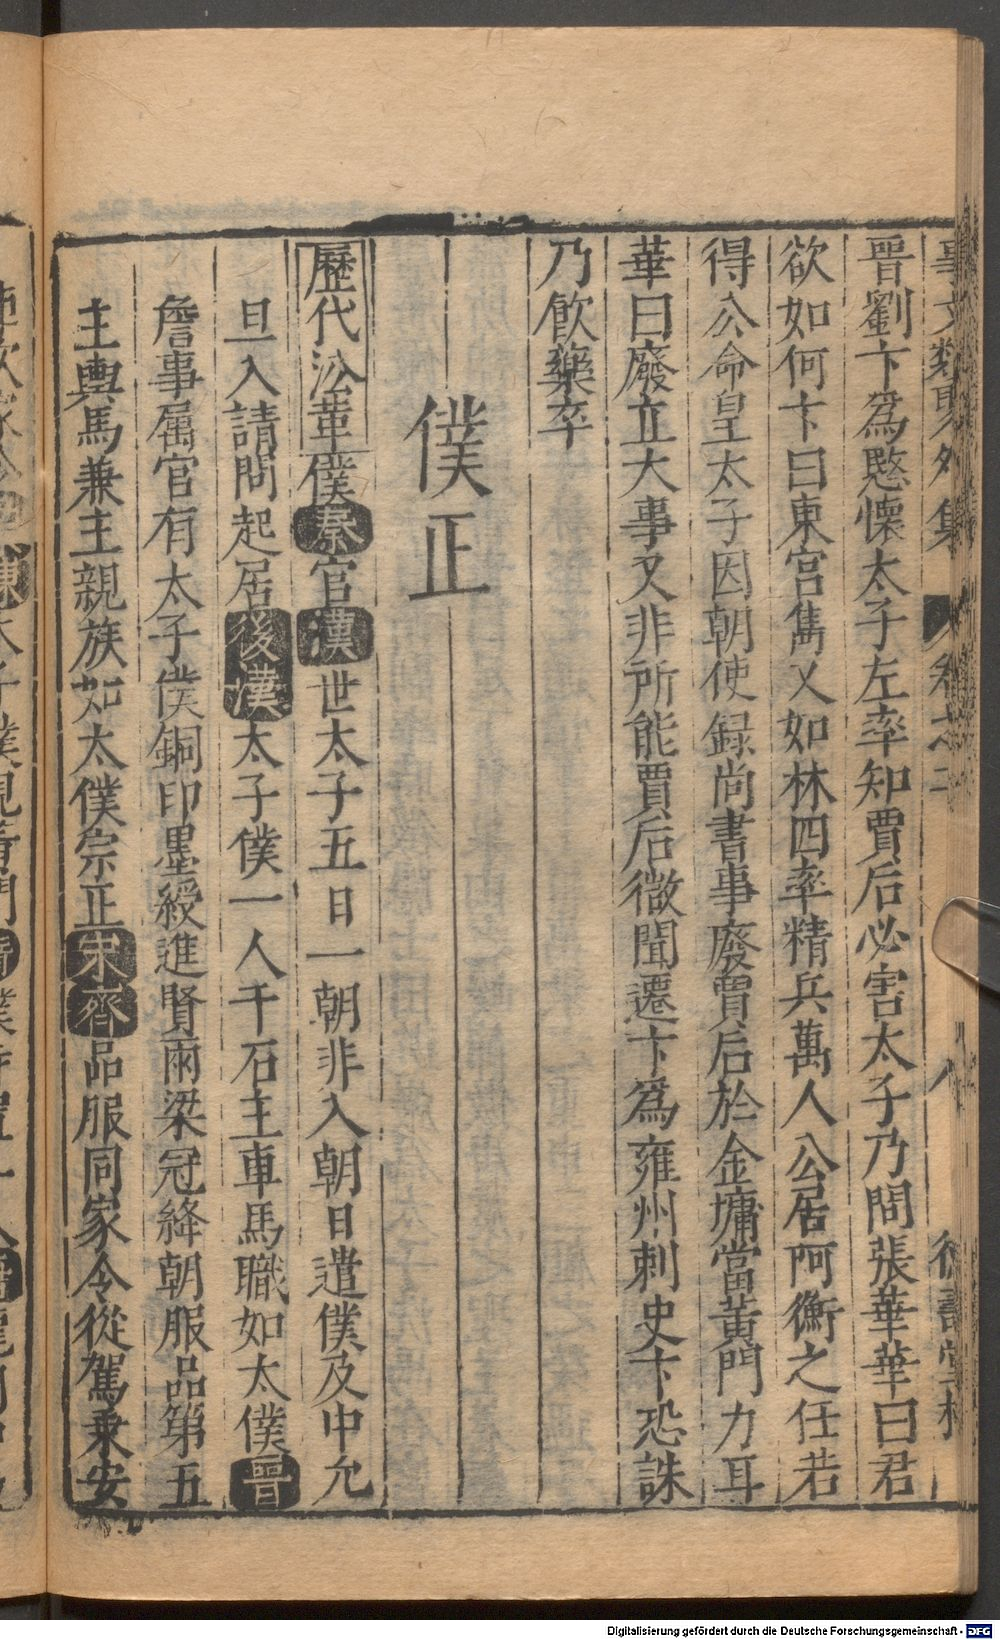 事文類聚外集 卷之二 八 德壽堂梓
晉劉卞爲愍懷太子左率知賈后必害太子乃問張華華曰君
欲如何卞曰東宮雋乂如林四率精兵萬人公居阿衡之任若
得公命皇太子因朝使録尚書事廢賈后於金墉當黄門力耳
華曰廢立大事又非所能賈后微聞遷卞爲雍州刺史卞恐誅
乃飲藥卒
僕正
歷代沿革僕秦官漢世太子五日一朝非入朝日遣僕及中允
旦入請問起居後漢太子僕一人千石主車馬職如太僕晉
詹事属官有太子僕銅印墨綬進賢兩梁冠絳朝服品第五
主輿馬兼主親族如太僕宗正宋齊品服同家令從駕乗安
Digitalisierung gefördert durch die Deutsche Forschungsgemeinschaft - DFG